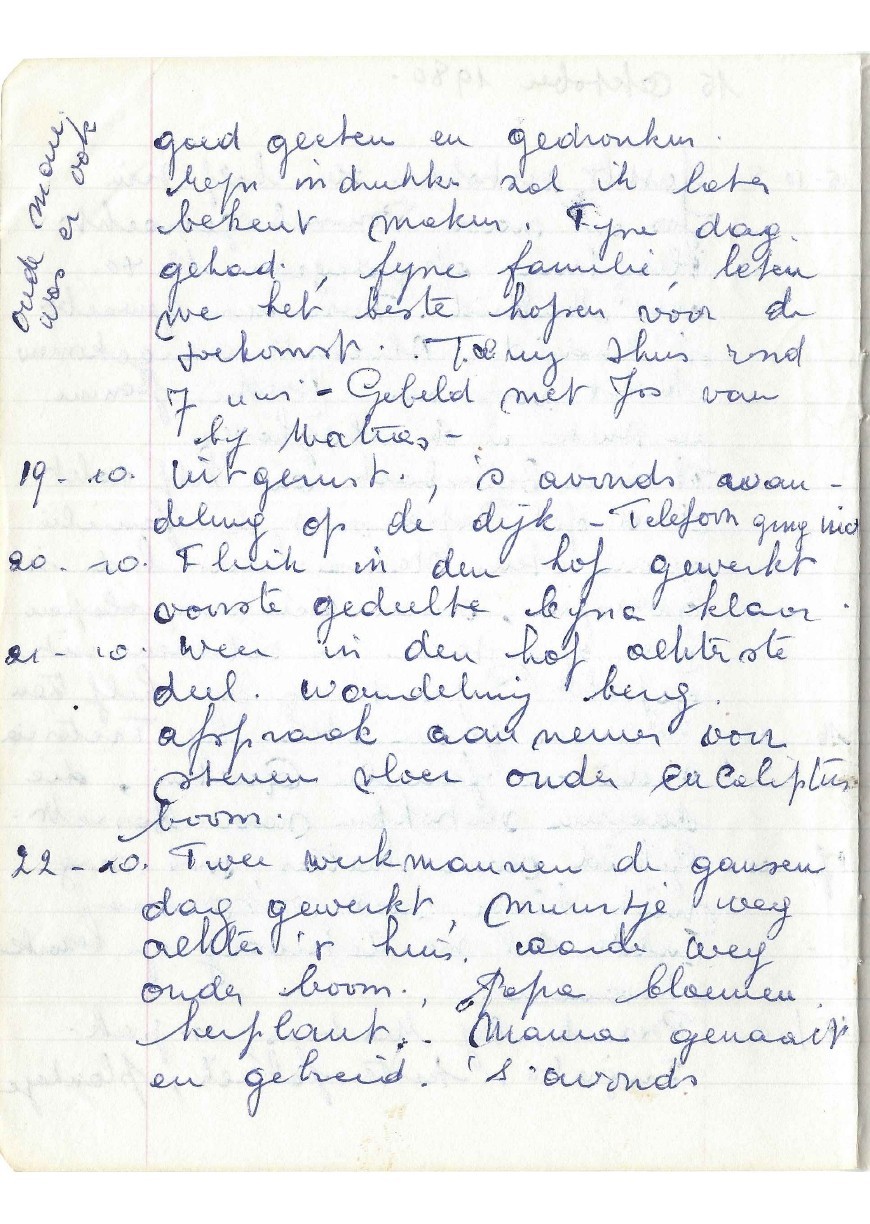 oude man
was er ook
goed geeten en gedronken.
Myn indrukke zal ik later
bekent maken. Fyne dag
gehad. fyne familie, laten
we het beste hopen voor de
toekomst. Terug thuis rond
7 uur - Gebeld met Jos van
by Matras -
19 - 10. Uitgerust, 's avonds wan-
deling op de dijk - Telefoon ging niet
20 - 10. Fluik in den hof gewerkt
voorste gedeelte byna klaar.
21 - 10. Weer in den hof achterste
deel. wandeling berg.
afspraak aannemer voor
stenen vloer onder eucaliptus
boom.
22 - 10. Twee werkmannen de gansen
dag gewerkt, muurtje weg
achter 't huis, aarde weg
onder boom. Papa bloemen
herplant. Mama genaait
en gebreid. 's avonds